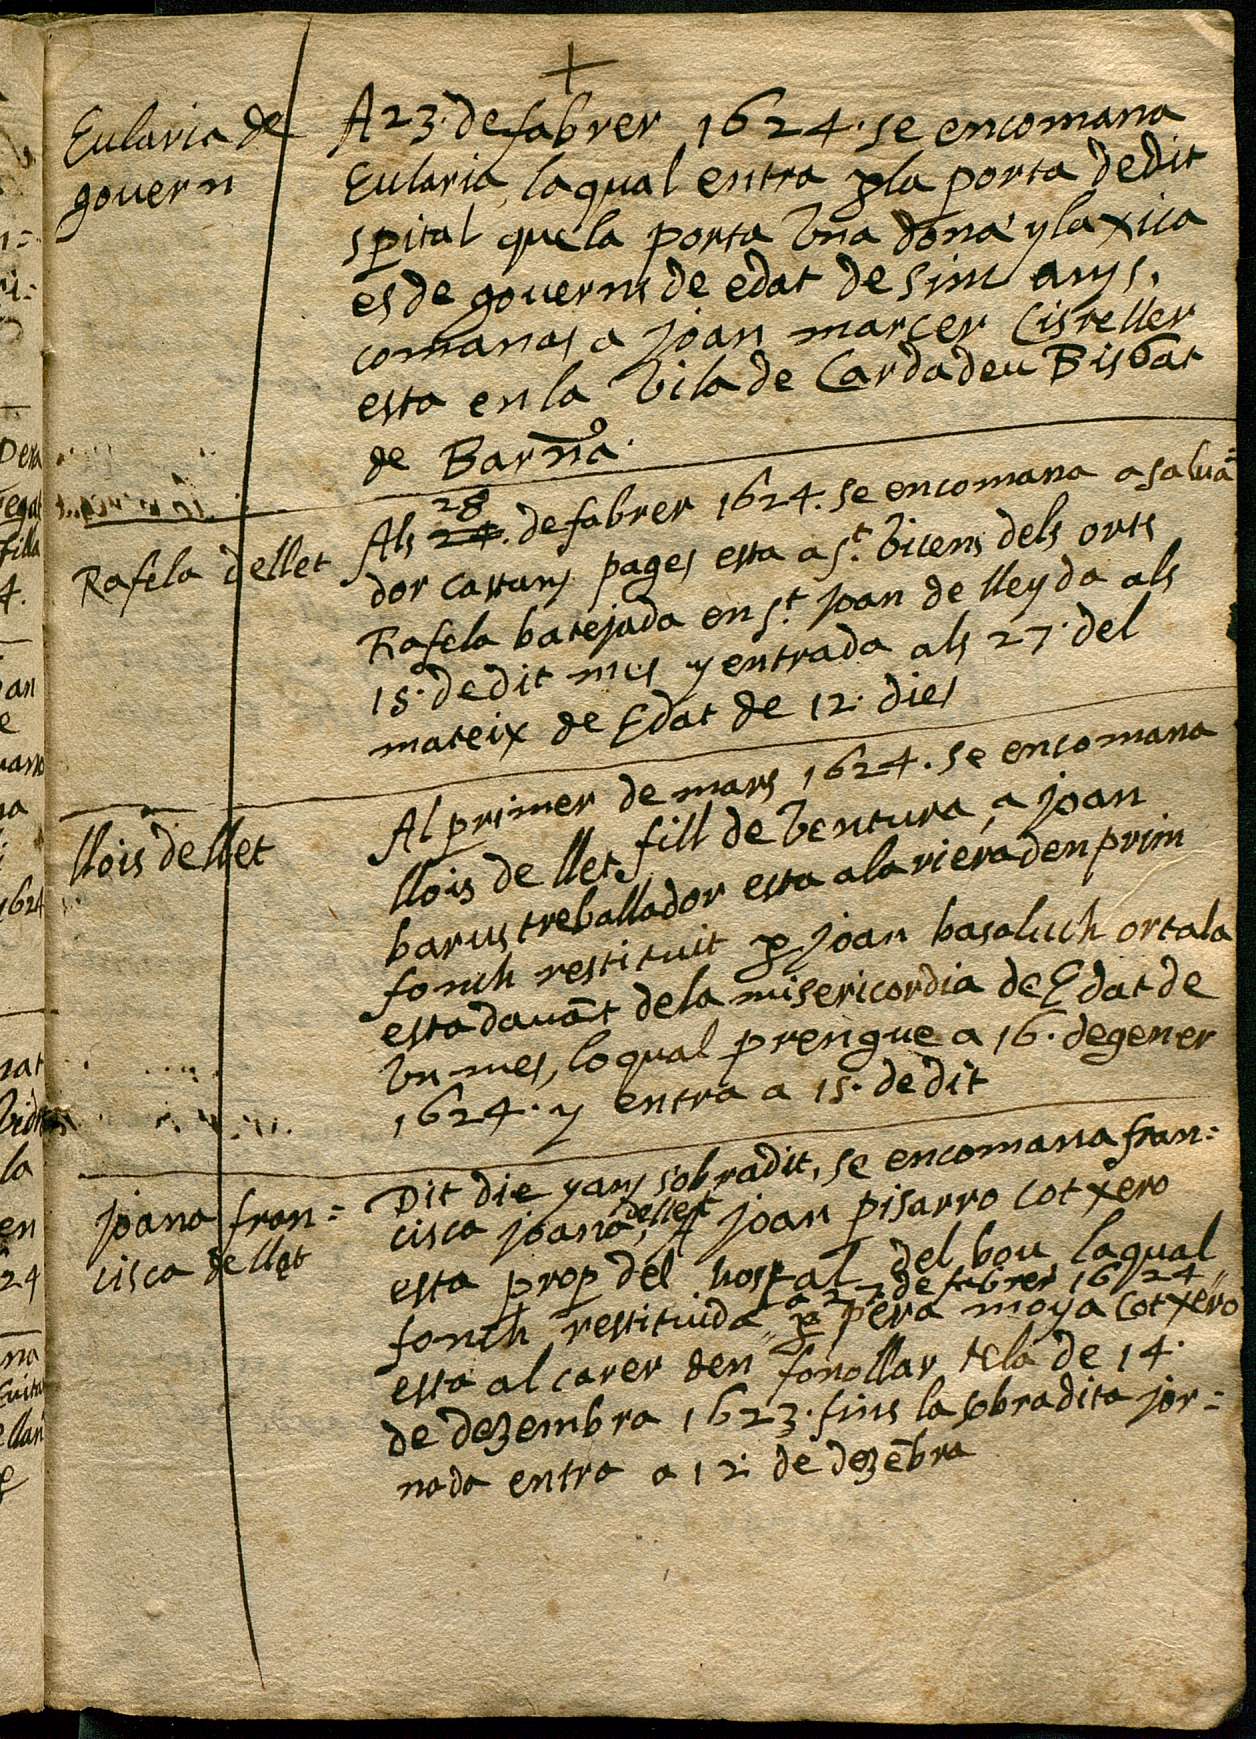 Eularia de
govern
A 23 · de fabrer 1624 · se encomana
Eularia, la qual entra p la porta de dit
spital que la porta vna dona y la xica
es de governs de edat de sinc anys,
comanas a joan marcer Cisteller
esta en la vila de Cardadeu Bisbat
de Barña.
Rafela de llet
Als 28 24. de fabrer 1624. se encomana a saluã
dor castany pages esta a st. vicens dels orts
Rafela batejada en st. joan de lleyda als
15 · de dit mes y entrada als 27 · del
mateix de Edat de 12 · dies
llois de llet
Al primer de mars 1624. se encomana
llois de llet, fill de ventura, a joan
barus treballador esta a la riera den prim
fonch restituit p joan basaluch ortala
esta dauãt de la misericordia de Edat de
vn mes, lo qual prengue a 16 · de gener
1624 · y entra a 15 · de dit
joana fran=
cisca de llet
Dit die y any sobradit, se encomana fran=
cisca joana, de llet A joan pisarro cotxero
esta prop del hospal del bou la qual
a 27 de fabrer 1624
fonch restituida " p pera moya cotxero
esta al carer den fonollar tela de 14 ·
de dezembra 1623 · fins la sobradita jor=
nada entra a 12 · de dezẽbra